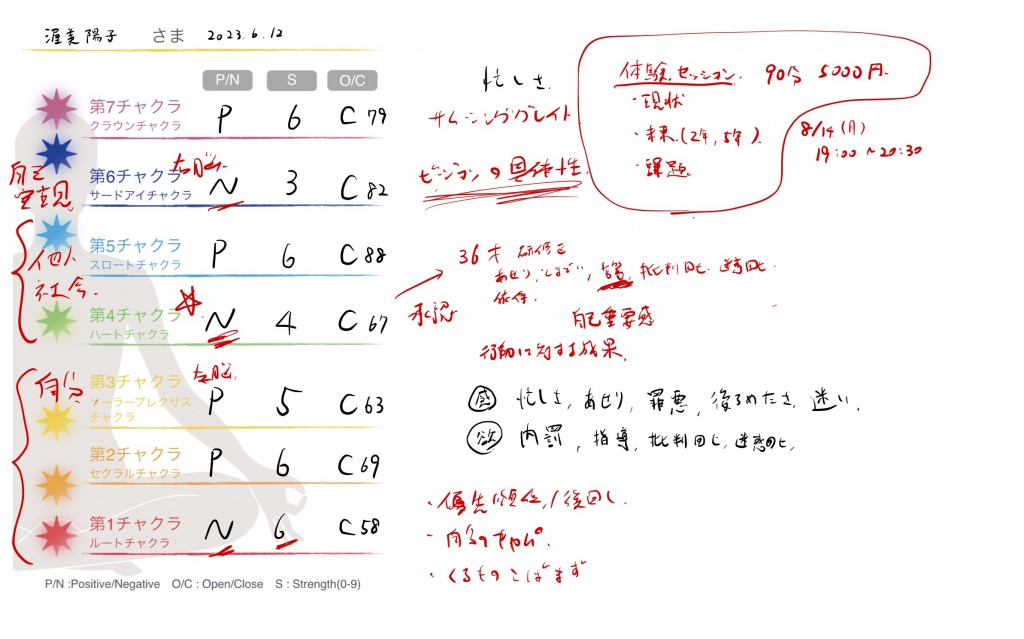 渥美陽子 さま 2023.6.12
P/N S O/C
第7チャクラ
クラウンチャクラ
P 6 C 79
第6チャクラ
サードアイチャクラ
右脳
N 3 C 82
第5チャクラ
スロートチャクラ
P 6 C 88
第4チャクラ
ハートチャクラ
N 4 C 67
第3チャクラ
ソーラープレクサス
チャクラ
左脳
P 5 C 63
第2チャクラ
セクラルチャクラ
P 6 C 69
第1チャクラ
ルートチャクラ
N 6 C 58
P/N :Positive/Negative O/C : Open/Close S : Strength(0-9)
自己
実現
他人
社会
自分
忙しさ
サムシンググレイト
ビジョンの具体性
体験セッション 90分 5000円
・現状
・未来(2年,5年)
・課題
8/14(月)
19:00~20:30
36才
批判回避 迷惑回避
依存
承認
自己重要感
行動に対する成果
感 忙しさ, あせり, 罪悪, 後ろめたさ, 迷い
欲 内罰, 指導, 批判回避, 迷惑回避
・優先順位/後回し
・自分のキャパ
・くるものこばまず